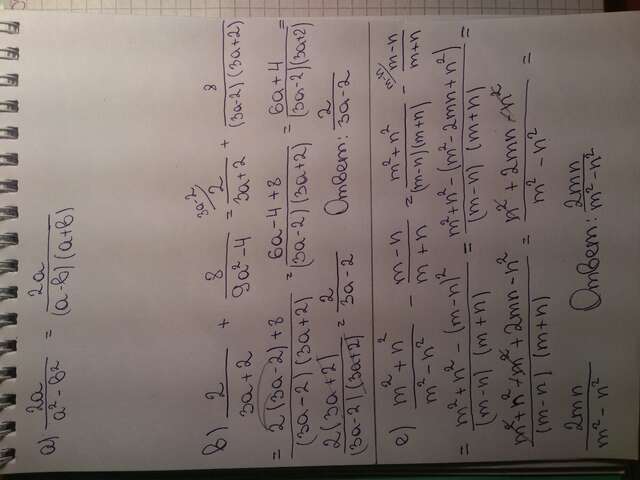 а) 2a/(a²-b²) = 2a/((a-b)(a+b))
в) 2/(3a+2) + 8/(9a²-4) = (3a-2/ 2/(3a+2) + 8/((3a-2)(3a+2))
= (2(3a-2)+8)/((3a-2)(3a+2)) = (6a-4+8)/((3a-2)(3a+2)) = (6a+4)/((3a-2)(3a+2))
2(3a+2)/((3a-2)(3a+2)) = 2/(3a-2) Ответ: 2/(3a-2)
е) (m²+n²)/(m²-n²) - (m-n)/(m+n) = (m²+n²)/((m-n)(m+n)) - (m-n)/(m+n)
= (m²+n²-(m-n)²)/((m-n)(m+n)) = (m²+n²-(m²-2mn+n²))/((m-n)(m+n)) =
(m²+n²+m²+2mn-n²)/((m-n)(m+n)) = (n²+2mn-n²)/(m²-n²) =
2mn/(m²-n²) Ответ: 2mn/(m²-n²)